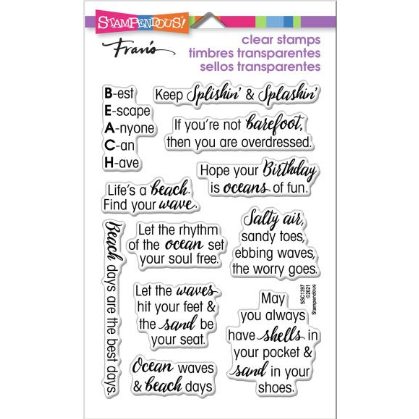 STAMPENDOUS!
Fran's
clear stamps
timbres transparentes
sellos transparentes
B-est
E-scape
A-nyone
C-an
H-ave
Keep Splishin' & Splashin'
If you're not barefoot,
then you are overdressed.
Hope your Birthday
is oceans of fun.
Life's a beach.
Find your wave.
Beach days are the best days.
Let the rhythm
of the ocean set
your soul free.
Salty air,
sandy toes,
ebbing waves,
the worry goes.
Let the waves
hit your feet &
the sand be
your seat.
May
you always
have shells in
your pocket &
sand in your
shoes.
Ocean waves
& beach days
SSC1397
©2021
Stampendous